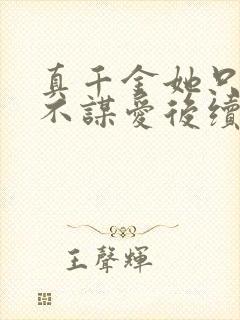 真千金她只
不謀愛後續
王聲輝